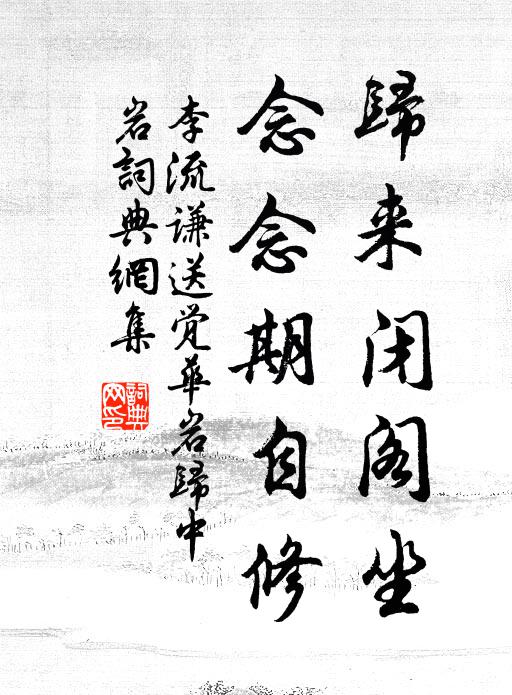 歸来闭阁坐
念念期自修
李流谦送觉華岩歸中
岩詞典網集
詞典网印